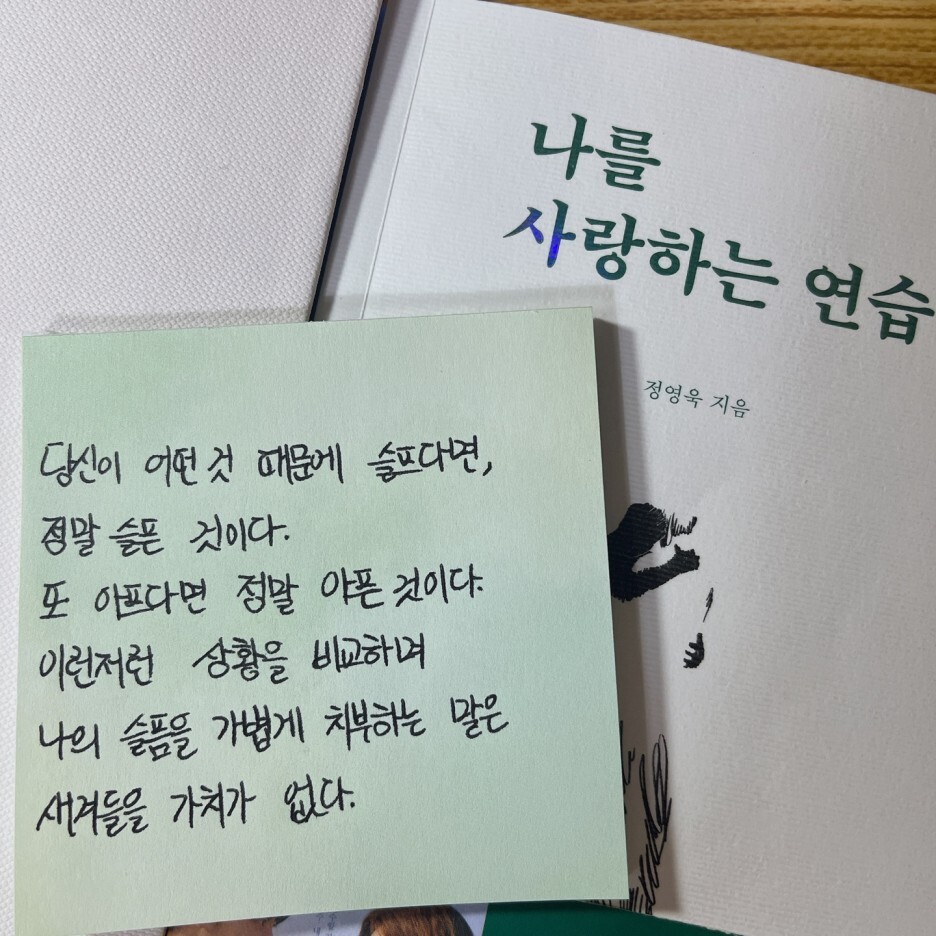 나를
사랑하는 연습
정영욱 지음
당신이 어떤 것 때문에 슬프다면,
정말 슬픈 것이다.
또 아프다면 정말 아픈 것이다.
이런저런 상황을 비교하며
나의 슬픔을 가볍게 치부하는 말은
새겨들을 가치가 없다.